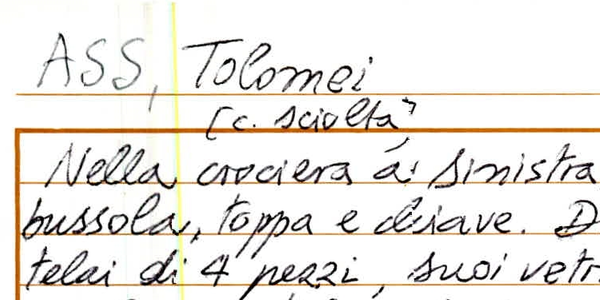 ASS, Tolomei
[c. sciolta]
Nella crociera a sinistra
bussola, toppa e chiave. D
telai di 4 pezzi, suoi vetr